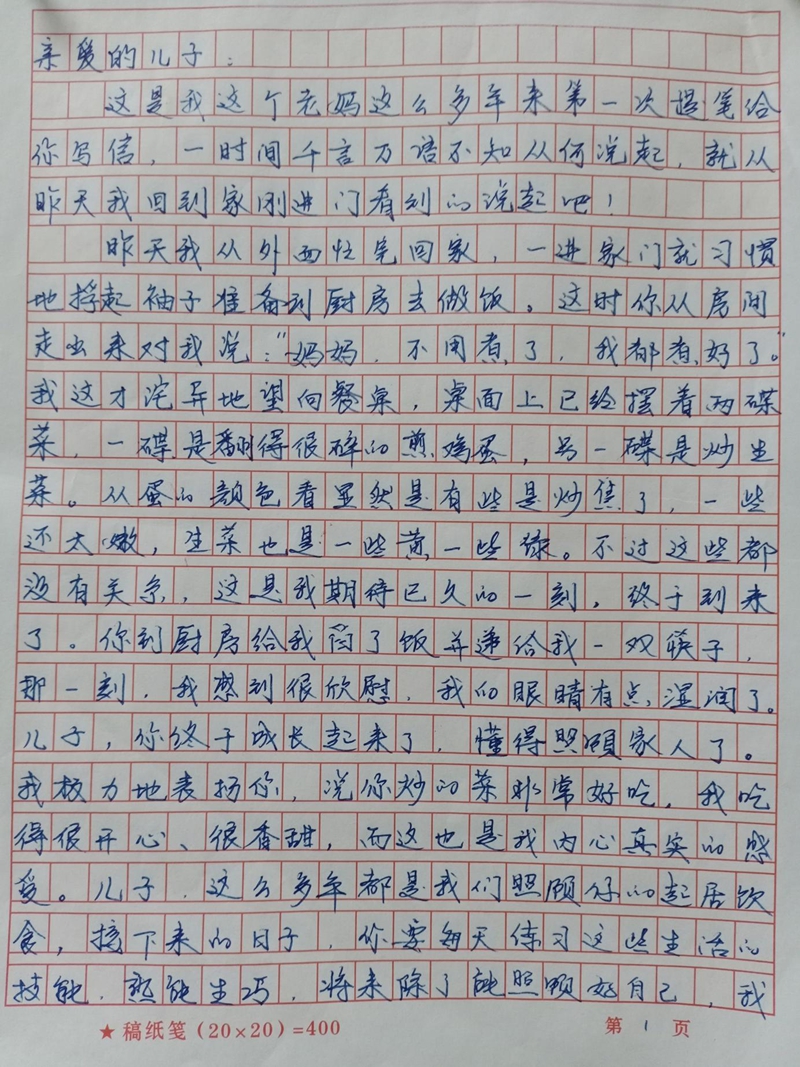 亲爱的儿子：
这是我这个老妈这么多年来第一次提笔给
你写信，一时间千言万语不知从何说起，就从
昨天我回到家刚进门看到的说起吧！
昨天我从外面忙完回家，一进家门就习惯
地捋起袖子准备到厨房去做饭。这时你从房间
走出来对我说："妈妈，不用煮了，我都煮好了。"
我这才诧异地望向餐桌，桌面上已经摆着两碟
菜，一碟是翻得很碎的煎鸡蛋，另一碟是炒生
菜。从蛋的颜色看显然是有些是炒焦了，一些
还太嫩，生菜也是一些黄一些绿。不过这些都
没有关系，这是我期待已久的一刻，终于到来
了。你到厨房给我舀了饭并递给我一双筷子，
那一刻，我感到很欣慰，我的眼睛有点湿润了。
儿子，你终于成长起来了，懂得照顾家人了。
我极力地表扬你，说你炒的菜非常好吃，我吃
得很开心、很香甜，而这也是我内心真实的感
受。儿子，这么多年都是我们照顾你的起居饮
食，接下来的日子，你要每天练习这些生活的
技能，熟能生巧，将来除了能照顾好自己，我
★稿纸笺(20×20)=400 第 1 页